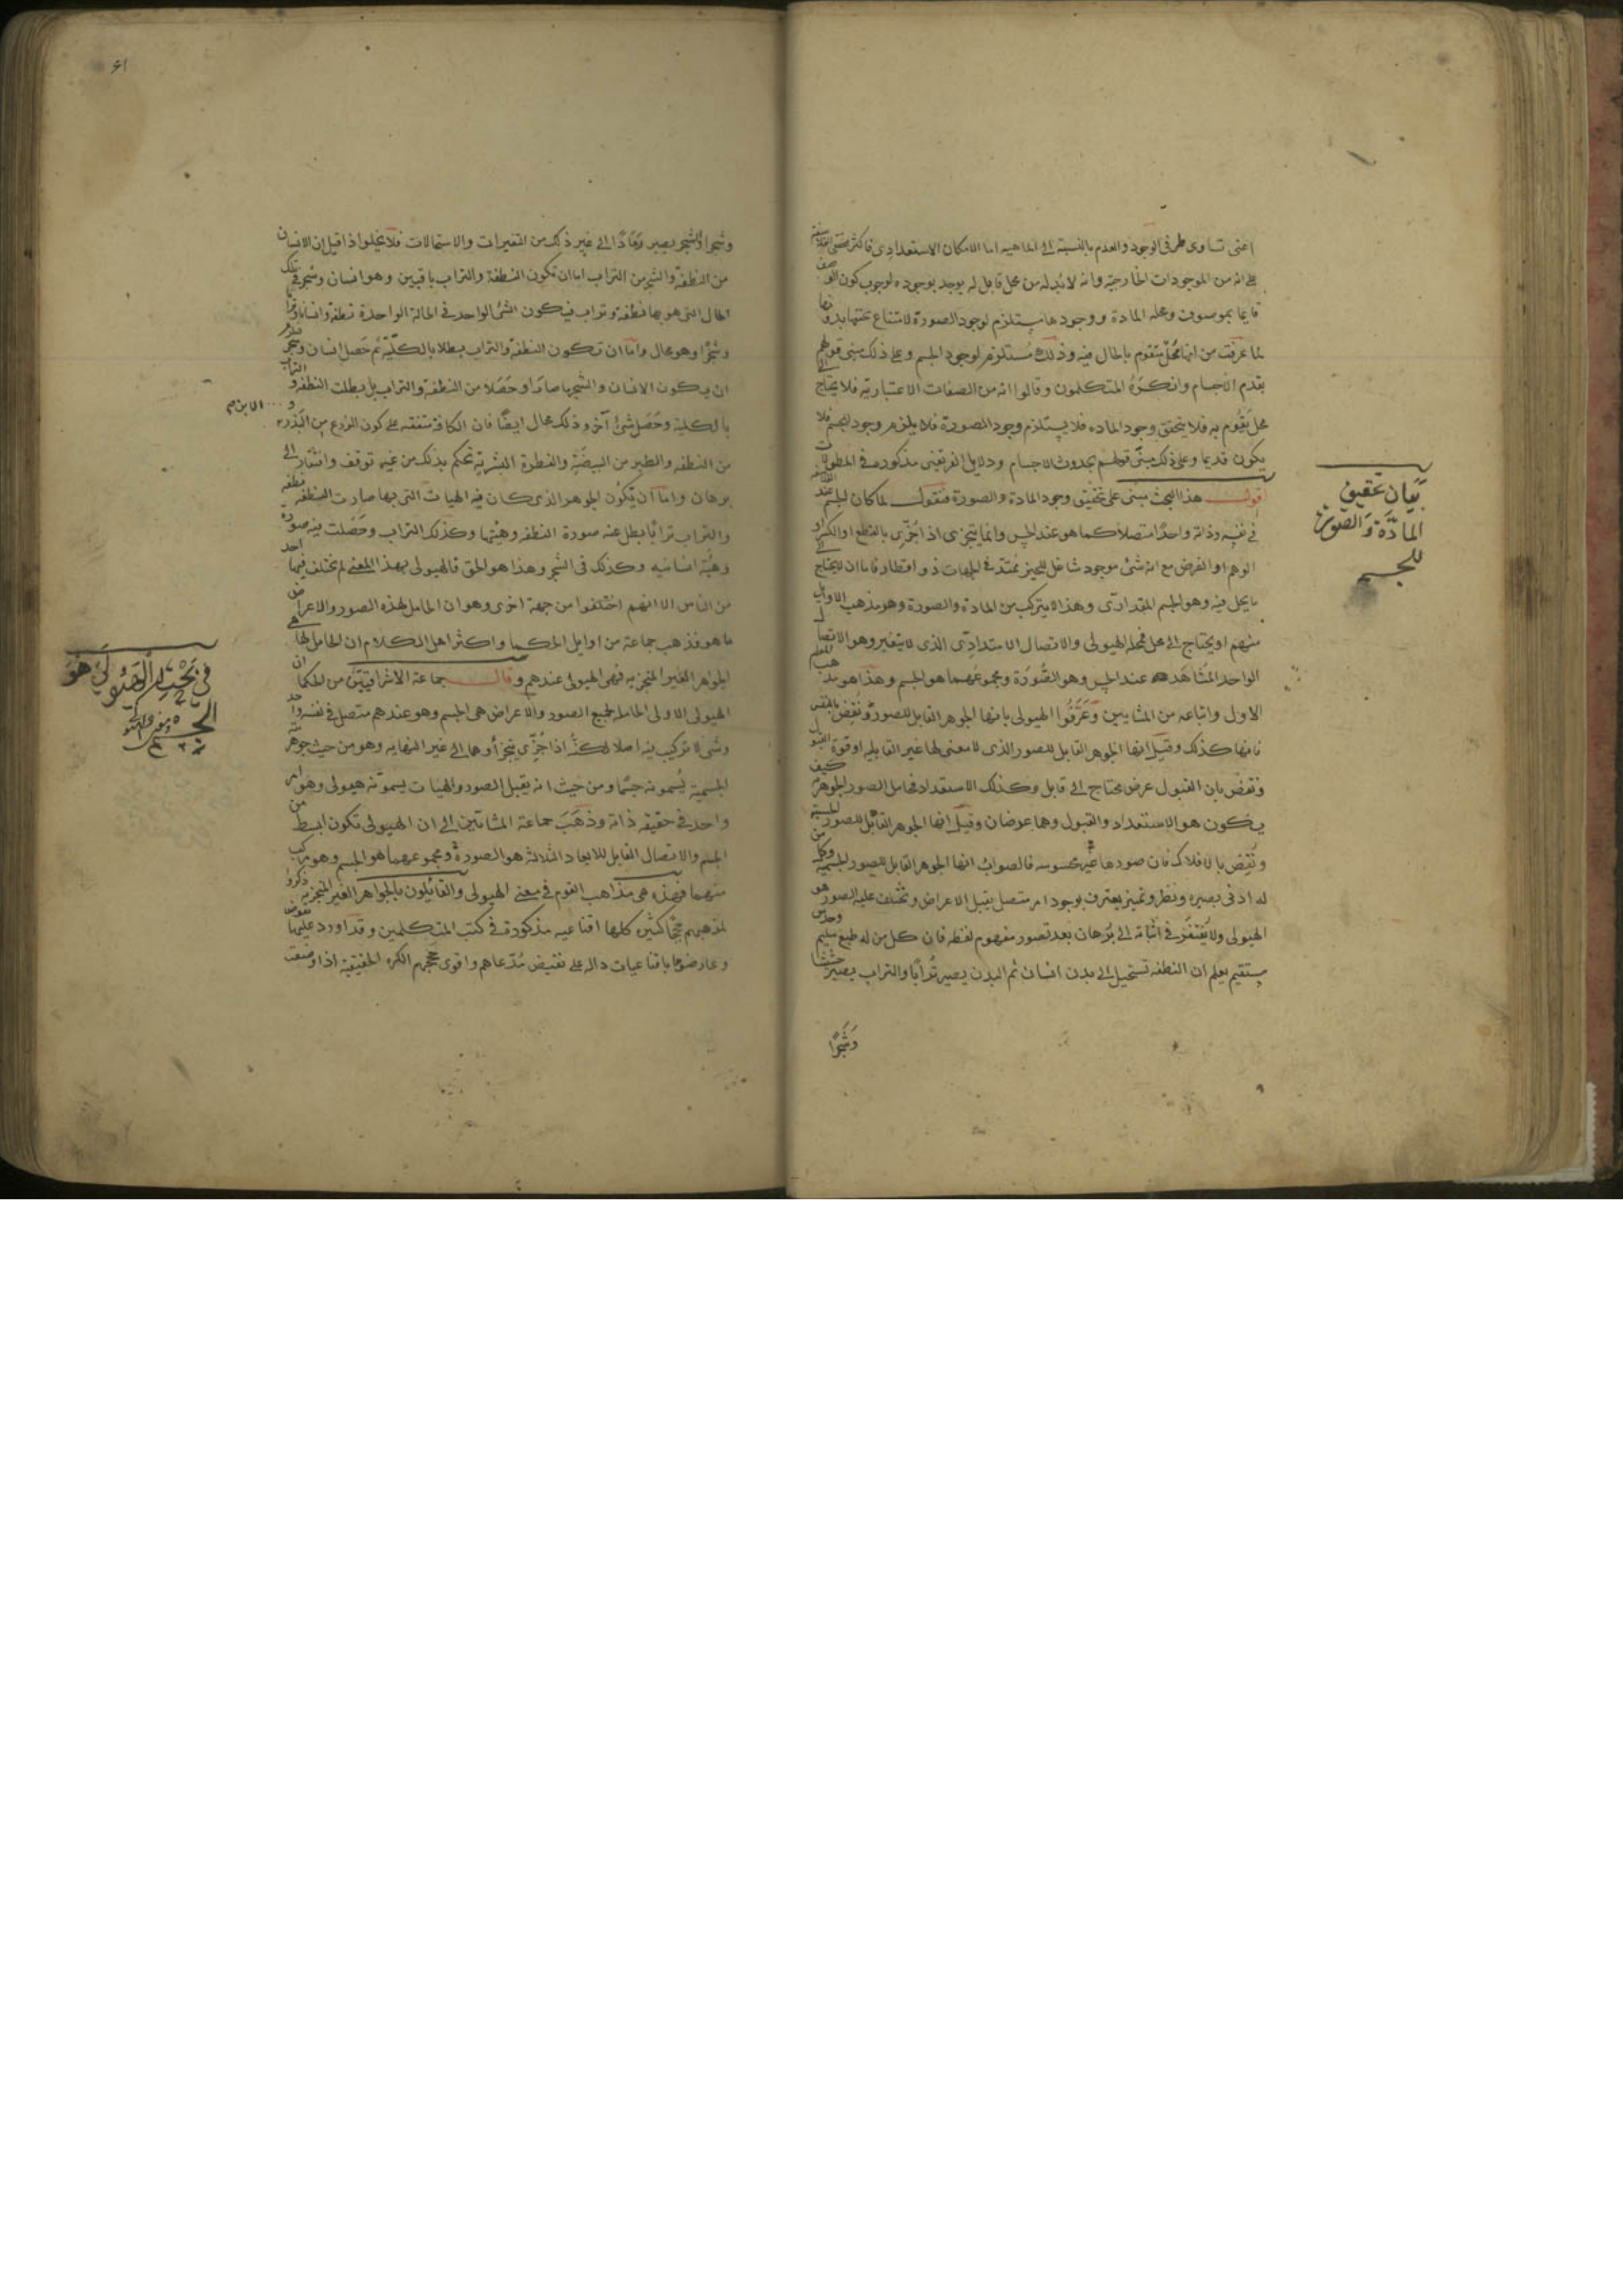 اعنى تساوى طرفى الوجود والعدم بالنسبة الى الماهية اما الامكان الاستعدادى فاكثر محققى الفلاسفة
على انه من الموجودات الخارجية وانه لابد له من محل قابل له يوجد بوجوده لوجوب كون الوصف
قايما بموصوف ومحله المادة ووجودها يستلزم لوجود الصورة لامتناع تحققها بدونها
لما عرفت من انها محل متقوم بالحال فيه وذلك مستلزم لوجود الجسم وعلى ذلك بنى قولهم
بقدم الاجسام وانكره المتكلمون وقالوا انه من الصفات الاعتبارية فلا يحتاج الى
محل يقوم به فلا يتحقق وجود الماده فلا يستلزم وجود الصورة فلا يلزم وجود الجسم فلا
يكون قديما وعلى ذلك بنى قولهم بحدوث الاجسام ودلايل الفريقين مذكورة فى المطولات
اقول هذا البحث مبنى على تحقيق وجود المادة والصورة فنقول لما كان الجسم عند الفلاسفة
فى نفسه وذاته واحدا متصلا كما هو عند الحس وانما يتجزى اذا جزى بالقطع او الكسر او
الوهم او الفرض مع انه شئ موجود شاغل للحيز ممتد فى الجهات ذو اقطار فاما ان لا يحتاج الى
ما يحل فيه وهو الجسم المقدارى وهذا لا يتركب من المادة والصورة وهو مذهب الاوايل
منهم او يحتاج الى محل فمحله الهيولى والاتصال الامتدادى الذى لا يتغير وهو الاتصال
الواحد المشاهد عند الحس وهو الصورة ومجموعهما هو الجسم وهذا هو مذهب المعلم
الاول واتباعه من المشايين وعرفوا الهيولى بانها الجوهر القابل للصورة ونقض بالنفس
فانها كذلك وقيل انها الجوهر القابل للصور الذى لا معنى لها غير القابلية او قوة القبول
ونقض بان القبول عرض محتاج الى قابل وكذلك الاستعداد فحامل الصور الجوهرية كيف
يكون هو الاستعداد والقبول وهما عرضان وقيل انها الجوهر القابل للصور الحسية
ونقض بالافلاك فان صورها غير محسوسه فالصواب انها الجوهر القابل للصور الجسمية وكل من
له ادنى بصيرة ونظر وتميز يعترف بوجود امر متصل يقبل الاعراض وتختلف عليه الصور هو
الهيولى ولا يفتقر فى اثباته الى برهان بعد تصور مفهوم لفظه فان كل من له طبع سليم وحدس
مستقيم يعلم ان النطفه تستحيل الى بدن انسان ثم البدن يصير ترابا والتراب يصير حشيشا
وشجرا
بيان تحقيق
المادة والصورة
للجسم
٦١
وشجرا والشجر يصير رمادا الى غير ذلك من التغيرات والاستحالات فلا يخلوا اذا قيل ان الانسان
من النطفة والشجر من التراب اما ان تكون النطفة والتراب باقيين وهو انسان وشجر فى تلك
الحال التى هو بها نطفة وتراب فيكون الشئ الواحد فى الحالة الواحدة نطفة وانسانا وترابا
وشجرا وهو محال واما ان تكون النطفة والتراب بطلا بالكلية ثم حصل انسان وشجر
ان يكون الانسان والشجر ما صارا وحصلا من النطفة والتراب بل بطلت النطفه والتراب
بالكلية وحصل شئ آخر وذلك محال ايضا فان الكافة متفقه على كون الزرع من البذر و الابن
من النطفه والطير من البيضة والفطرة البشرية تحكم بذلك من غير توقف وافتقار الى
برهان واما ان يكون الجوهر الذى كان فيه الهيات التى بها صارت النطفه نطفة
والتراب ترابا بطل عنه صورة النطفه وهيئتها وكذلك التراب وحصلت فيه صورة
وهيئة انسانيه وكذلك فى الشجر وهذا هو الحق فالهيولى بهذا المعنى لم يختلف فيها احد
من الناس الا انهم اختلفوا من جهة اخرى وهو ان الحامل لهذه الصور والاعراض
ما هو فذهب جماعة من اوايل الحكما واكثر اهل الكلام ان الحامل لها هى
الجواهر الغير المتجزيه فهى الهيولى عندهم وقال جماعة الاشراقيين من الحكما ان
الهيولى الاولى الحامل لجميع الصور والاعراض هى الجسم وهو عندهم متصل فى نفسه واحد
وشئ لا تركيب فيه اصلا لكنه اذا جزى يتجزأ وهما الى غير النهايه وهو من حيث جوهريته
الجسمية يسمونه جسما ومن حيث انه يقبل الصور والهيات يسمونه هيولى وهو امر
واحد فى حقيقه ذاته وذهب جماعة المشائين الى ان الهيولى تكون ابسط من
الجسم والاتصال القابل للابعاد الثلاثة هو الصورة ومجموعهما هو الجسم وهو مركب
منهما فهذه هى مذاهب القوم فى معنى الهيولى والقائلون بالجواهر الغير المتجزيه ذكروا
لمذهبهم حججا كثيرة كلها اقناعيه مذكورة فى كتب المتكلمين وقد اورد عليها نقوض
وعارضوها باقناعيات داله على نقيض مدعاهم واقوى حججهم الكره الحقيقية اذا وضعت
فى بحث ان الهيولى هو
الجسم